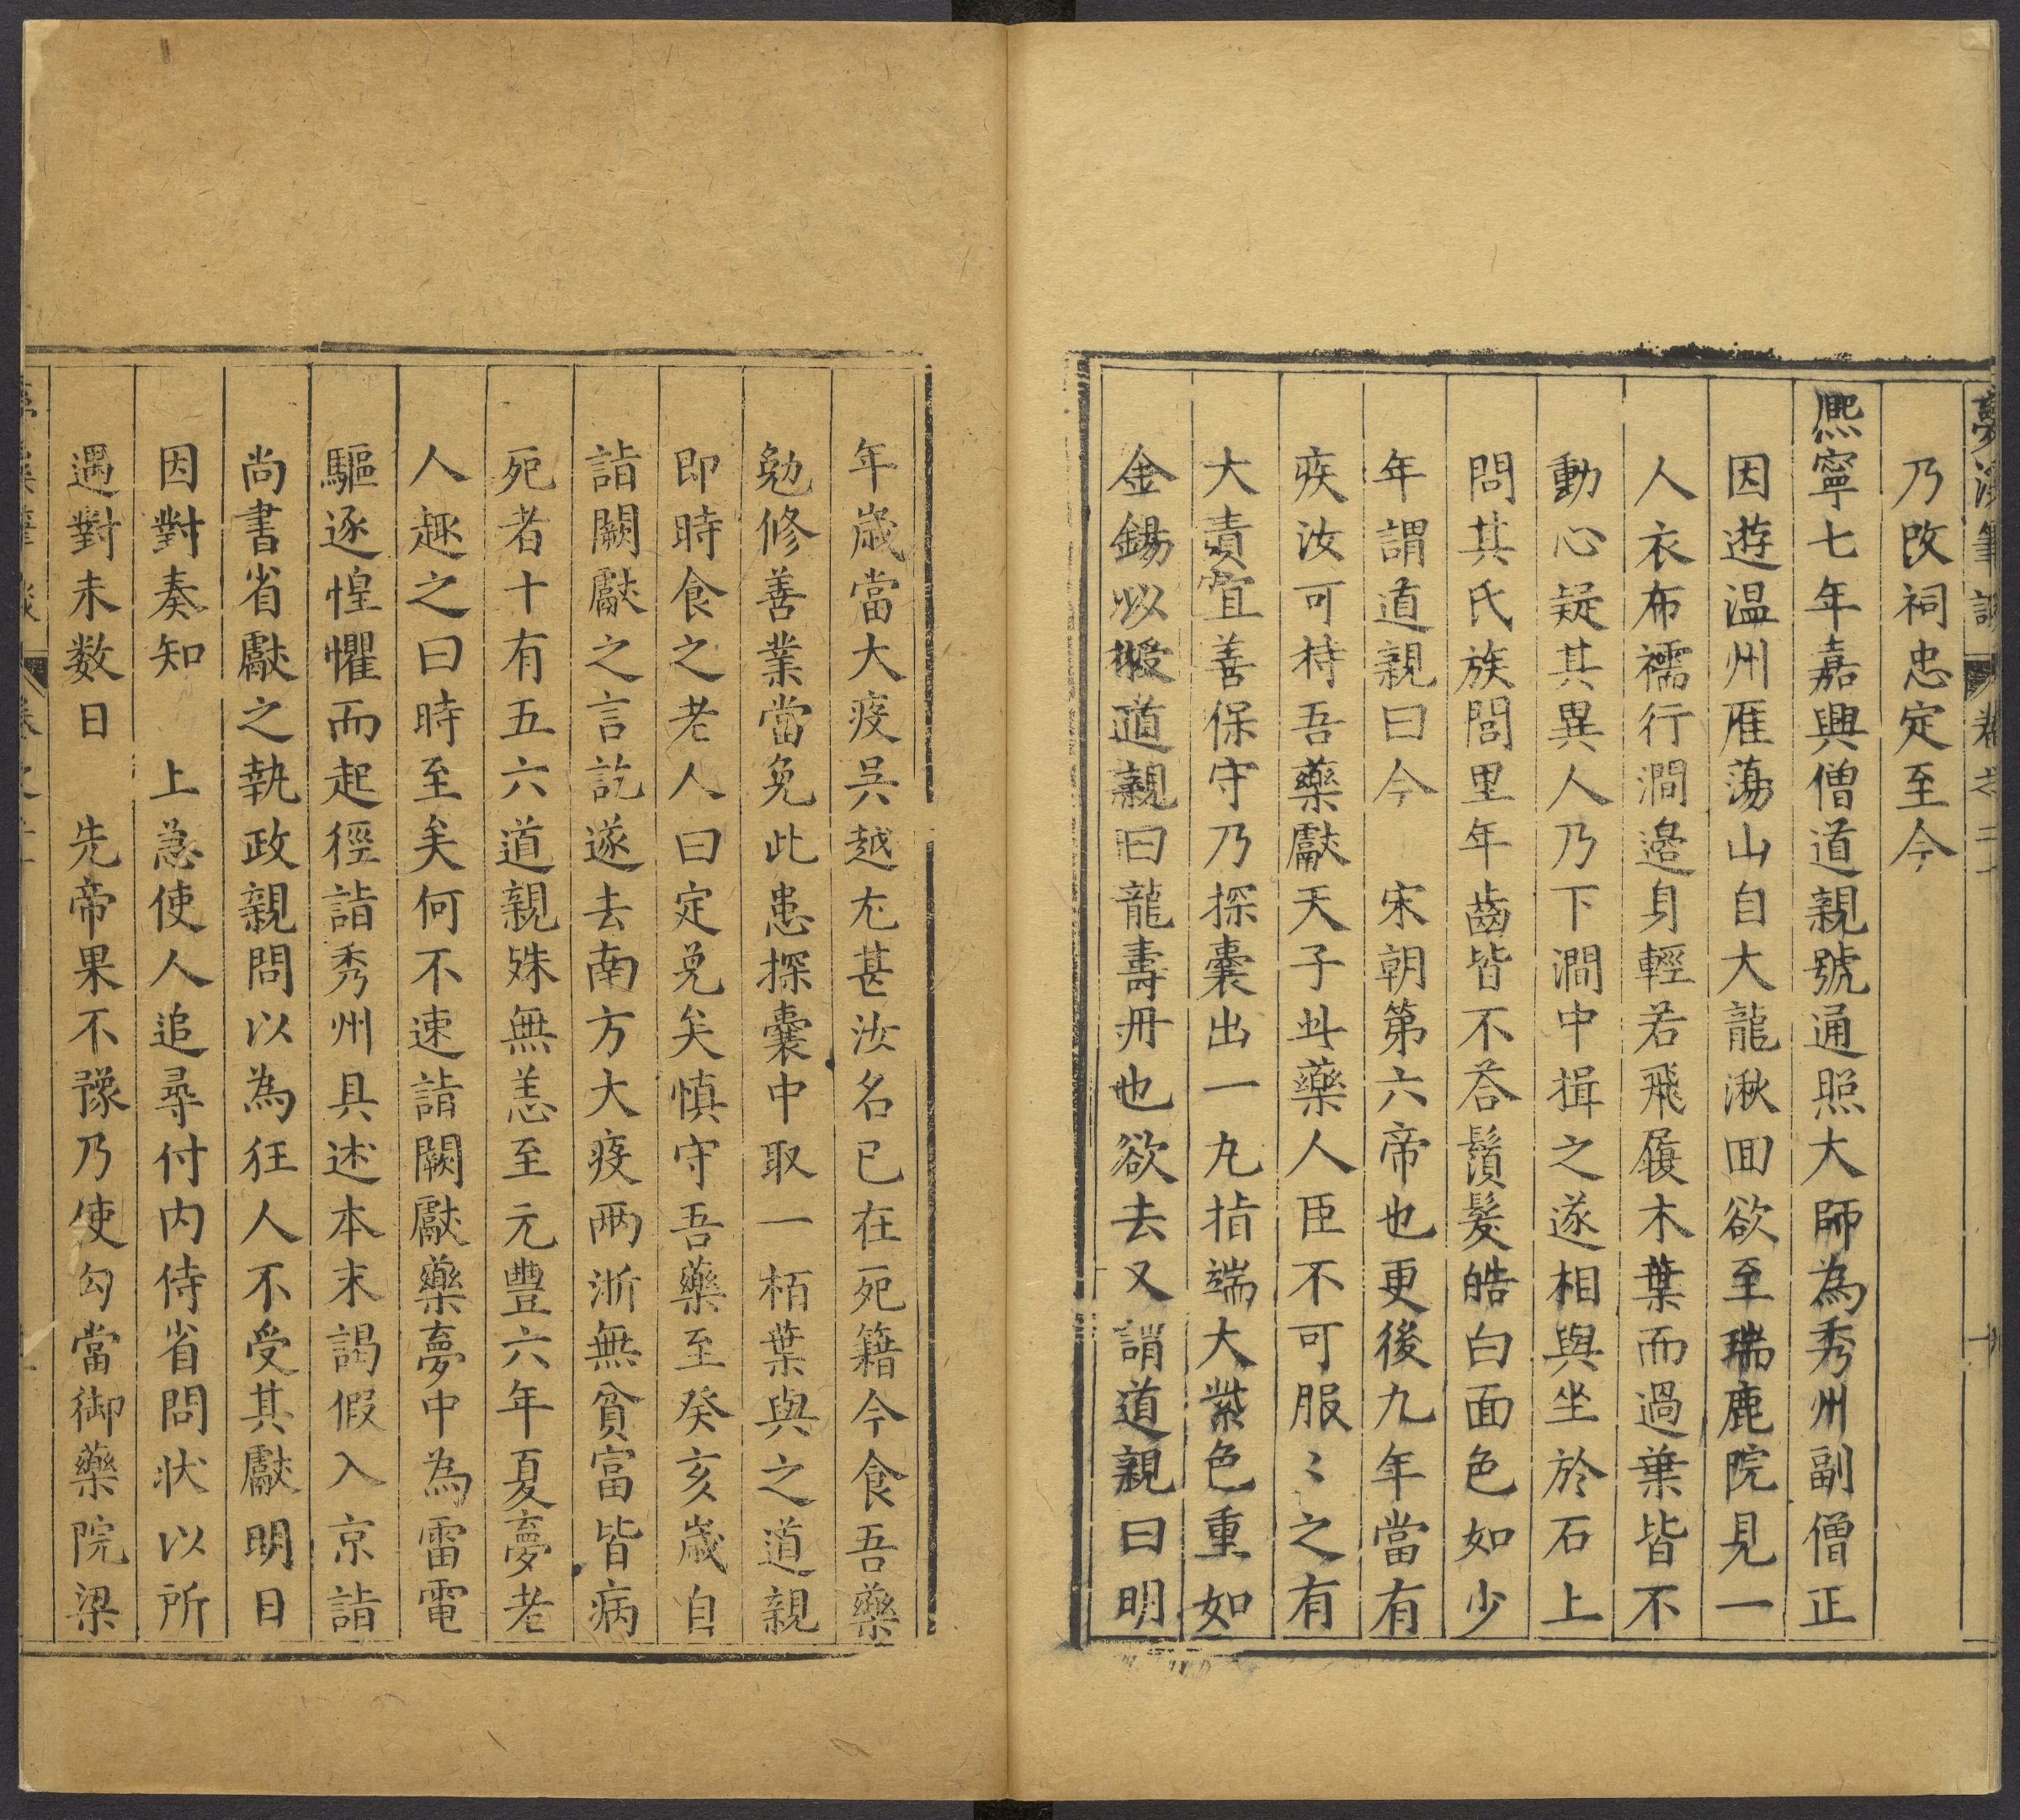 夢溪筆談 卷之二十
乃改祠忠定至今
熈寧七年嘉興僧道親號通照大師為秀州副僧正
因遊温州雁蕩山自大龍湫回欲至瑞鹿院見一
人衣布襦行澗邉身輕若飛履木葉而過葉皆不
動心疑其異人乃下澗中揖之遂相與坐於石上
問其氏族閭里年齒皆不荅鬚髮皓白面色如少
年謂道親曰今　宋朝第六帝也更後九年當有
疾汝可持吾藥獻天子此藥人臣不可服〻之有
大責宜善保守乃探囊出一丸指端大紫色重如
金錫以授道親曰龍壽丹也欲去又謂道親曰明
年歲當大疫吳越尤甚汝名已在死籍今食吾藥
勉修善業當免此患探囊中取一栢葉與之道親
即時食之老人曰定免矣慎守吾藥至癸亥歲自
詣闕獻之言訖遂去南方大疫兩浙無貧富皆病
死者十有五六道親殊無恙至元豐六年夏夢老
人趣之曰時至矣何不速詣闕獻藥夢中為雷電
驅逐惶懼而起徑詣秀州具述本末謁假入京詣
尚書省獻之執政親問以為狂人不受其獻明日
因對奏知　上急使人追尋付内侍省問狀以所
遇對未数日　先帝果不豫乃使勾當御藥院梁